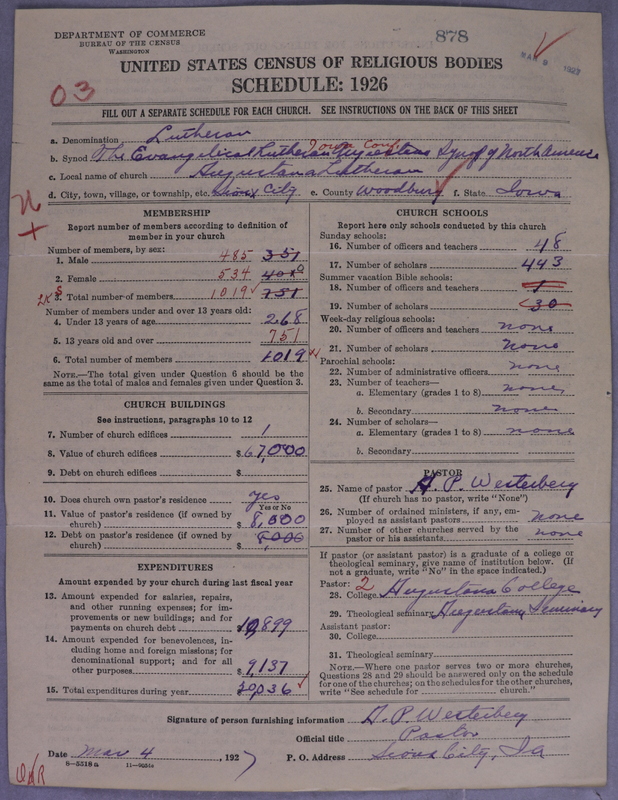 DEPARTMENT OF COMMERCE
BUREAU OF THE CENSUS
WASHINGTON
878
MAR 9 1927
UNITED STATES CENSUS OF RELIGIOUS BODIES
SCHEDULE: 1926
03
FILL OUT A SEPARATE SCHEDULE FOR EACH CHURCH. SEE INSTRUCTIONS ON THE BACK OF THIS SHEET
a. Denomination Lutheran
Iowa Conf.
b. Synod The Evangelical Lutheran Augustana Synod of North America
c. Local name of church Augustana Lutheran
d. City, town, village, or township, etc. Sioux City e. County Woodbury f. State Iowa
MEMBERSHIP
Report number of members according to definition of
member in your church
Number of members, by sex:
1. Male 485 351
2. Female 534 400
3. Total number of members 1019 751
Number of members under and over 13 years old:
4. Under 13 years of age 268
5. 13 years old and over 751
6. Total number of members 1019
NOTE.—The total given under Question 6 should be
same as the total of males and females given under Question 3.
CHURCH BUILDINGS
See instructions, paragraphs 10 to 12
7. Number of church edifices 1
8. Value of church edifices $67,000
9. Debt on church edifices $
10. Does church own pastor's residence yes
Yes or No
11. Value of pastor's residence (if owned by
church) $ 8,000
12. Debt on pastor's residence (if owned by
church) $ 8,000
EXPENDITURES
Amount expended by church during last fiscal year
13. Amount expended for salaries, repairs,
and other running expenses; for im-
provements or new buildings; and for
payments on church debt 10,899
14. Amount expended for benevolences, in-
cluding home and foreign missions; for
denominational support; and for all
other purposes $ 9,137
15. Total expenditures during year 20,036
CHURCH SCHOOLS
Report here only schools conducted by this church
Sunday schools:
16. Number of officers and teachers 48
17. Number of scholars 443
Summer vacation Bible schools:
18. Number of officers and teachers 1
19. Number of scholars 30
Week-day religious schools:
20. Number of officers and teachers none
21. Number of scholars None
Parochial schools:
22. Number of administrative officers none
23. Number of teachers—
a. Elementary (grades 1 to 8) none
b. Secondary none
24. Number of scholars—
a. Elementary (grades 1 to 8) none
b. Secondary
PASTOR
25. Name of pastor A. P. Westerberg
(If church has no pastor, write "None")
26. Number of ordained ministers, if any, em-
ployed as assistant pastors none
27. Number of other churches served by the
pastor or his assistants none
If pastor (or assistant pastor) is a graduate of a college or
theological seminary, give name of institution below. (If
not a graduate, write "No" in the space indicated.)
Pastor: 2
28. College Augustana College
29. Theological seminary Augustana Seminary
Assistant pastor:
30. College
31. Theological seminary
NOTE.—Where one pastor serves two or more churches,
Questions 28 and 29 should be answered only on the schedule
for one of the churches; on the schedules for the other churches,
write "See schedule for church."
Signature of person furnishing information A. P. Westerberg
Official title Pastor
Date Mar 4, 1927 P. O. Address Sioux City, Ia
8-5518a 11-9051c